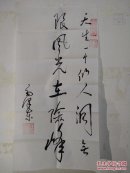 天生一个仙人洞无
限风光在险峰
毛泽东